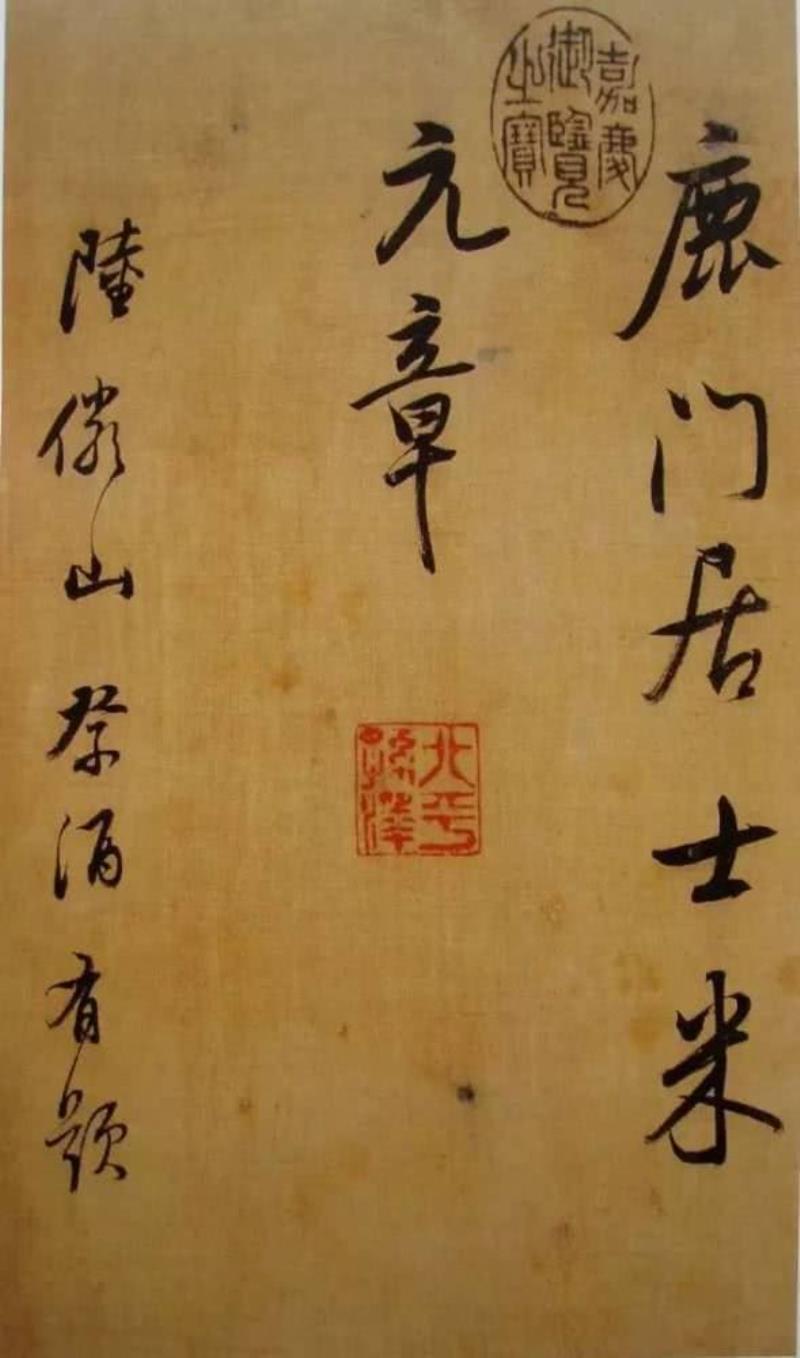 鹿门居士米
元章
陸儼山祭酒有題
嘉慶
御覽
之寶
北平
孫澤